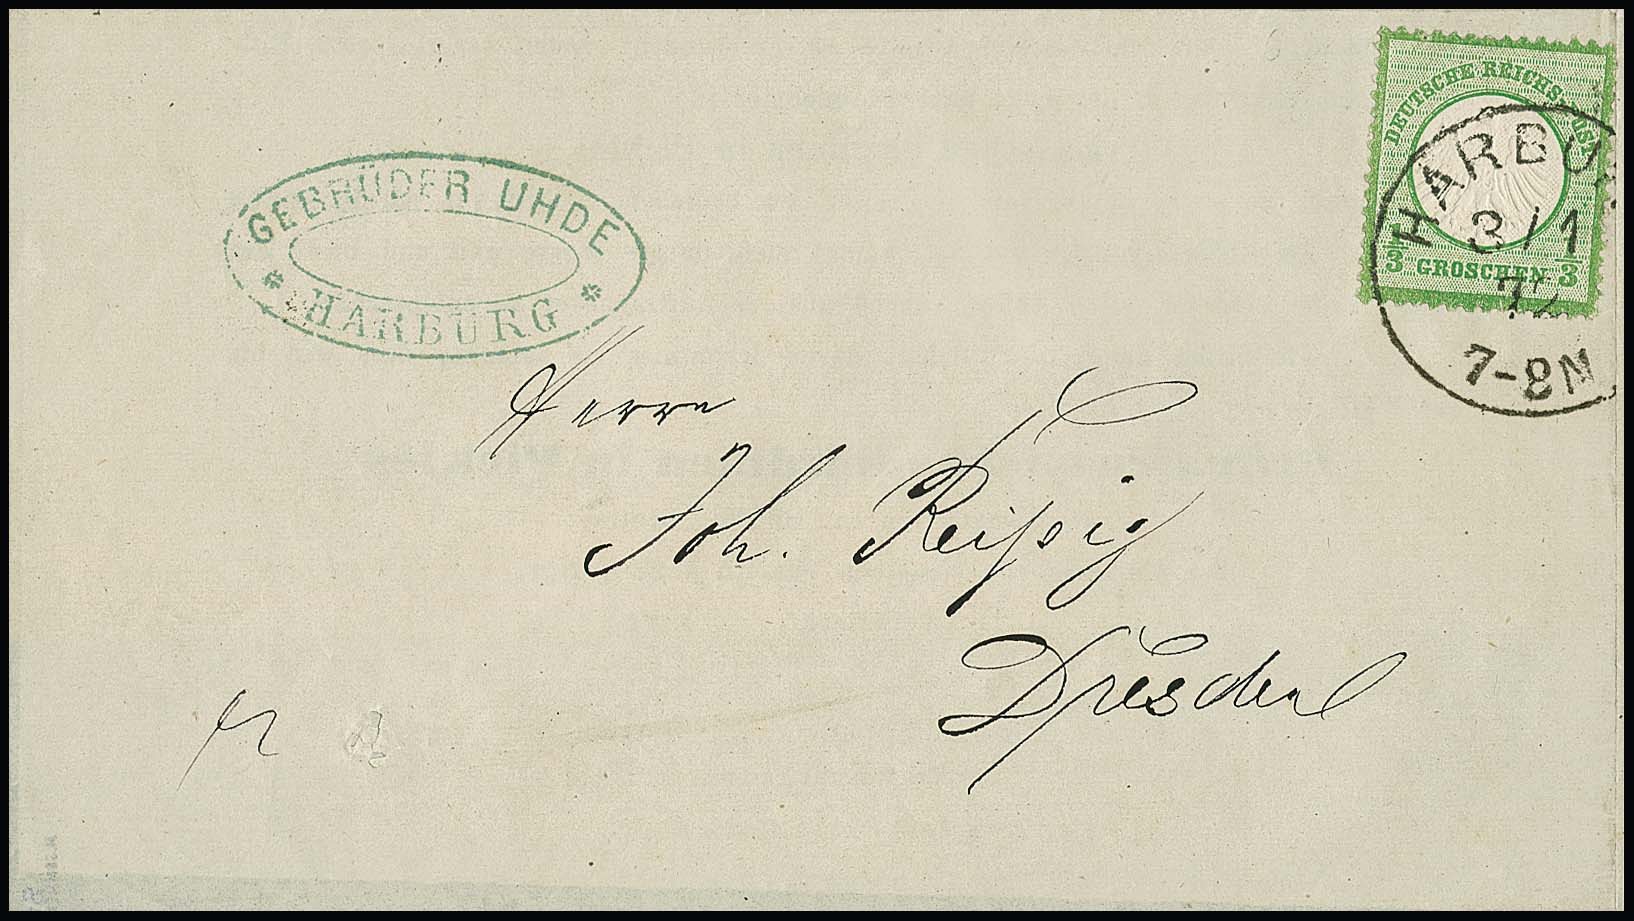 DEUTSCHE REICHS-POST
HARBU
3/1
72
1/3 GROSCHEN 1/3
7-8N
GEBRÜDER UHDE
* HARBURG *
Herrn
Joh. Reißig
Dresden